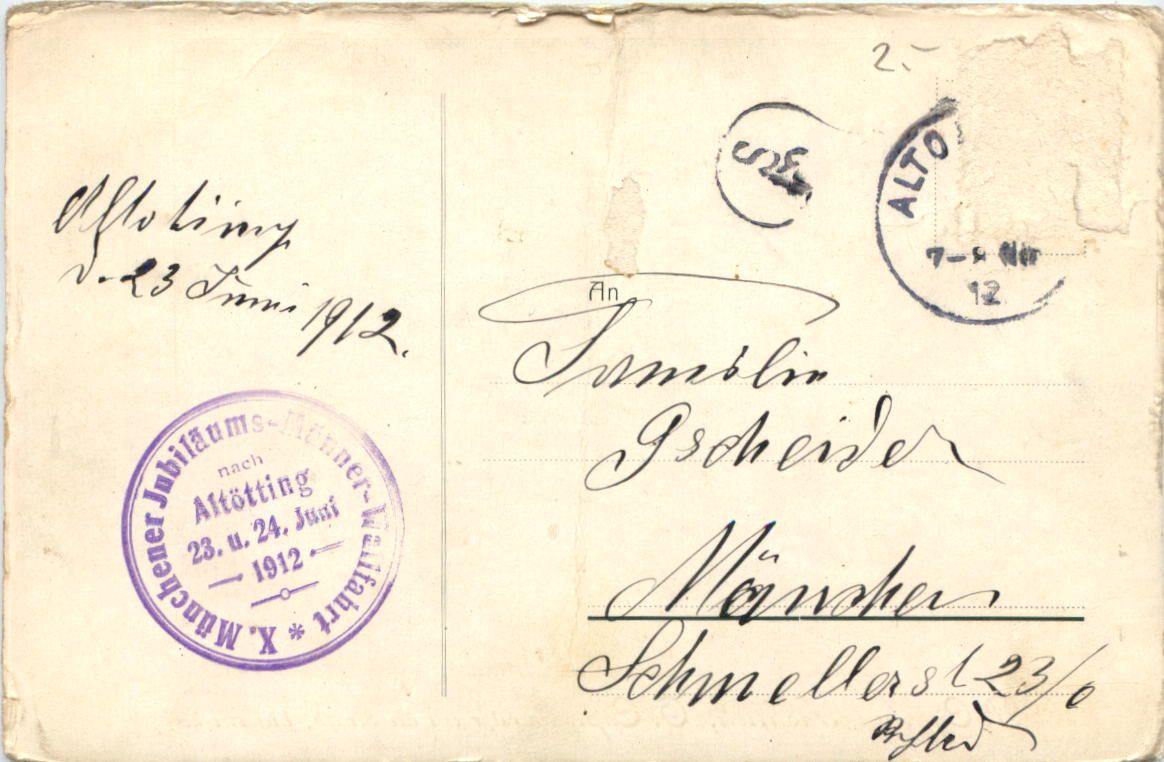 2.-
ALTO
7-8 Nm
12
Altötting
d. 23 Juni 1912.
An
Familie
Gscheider
München
Schmellerst 23/0
X. Münchener Jubiläums-Männer-Wallfahrt *
nach
Altötting
23. u. 24. Juni
1912